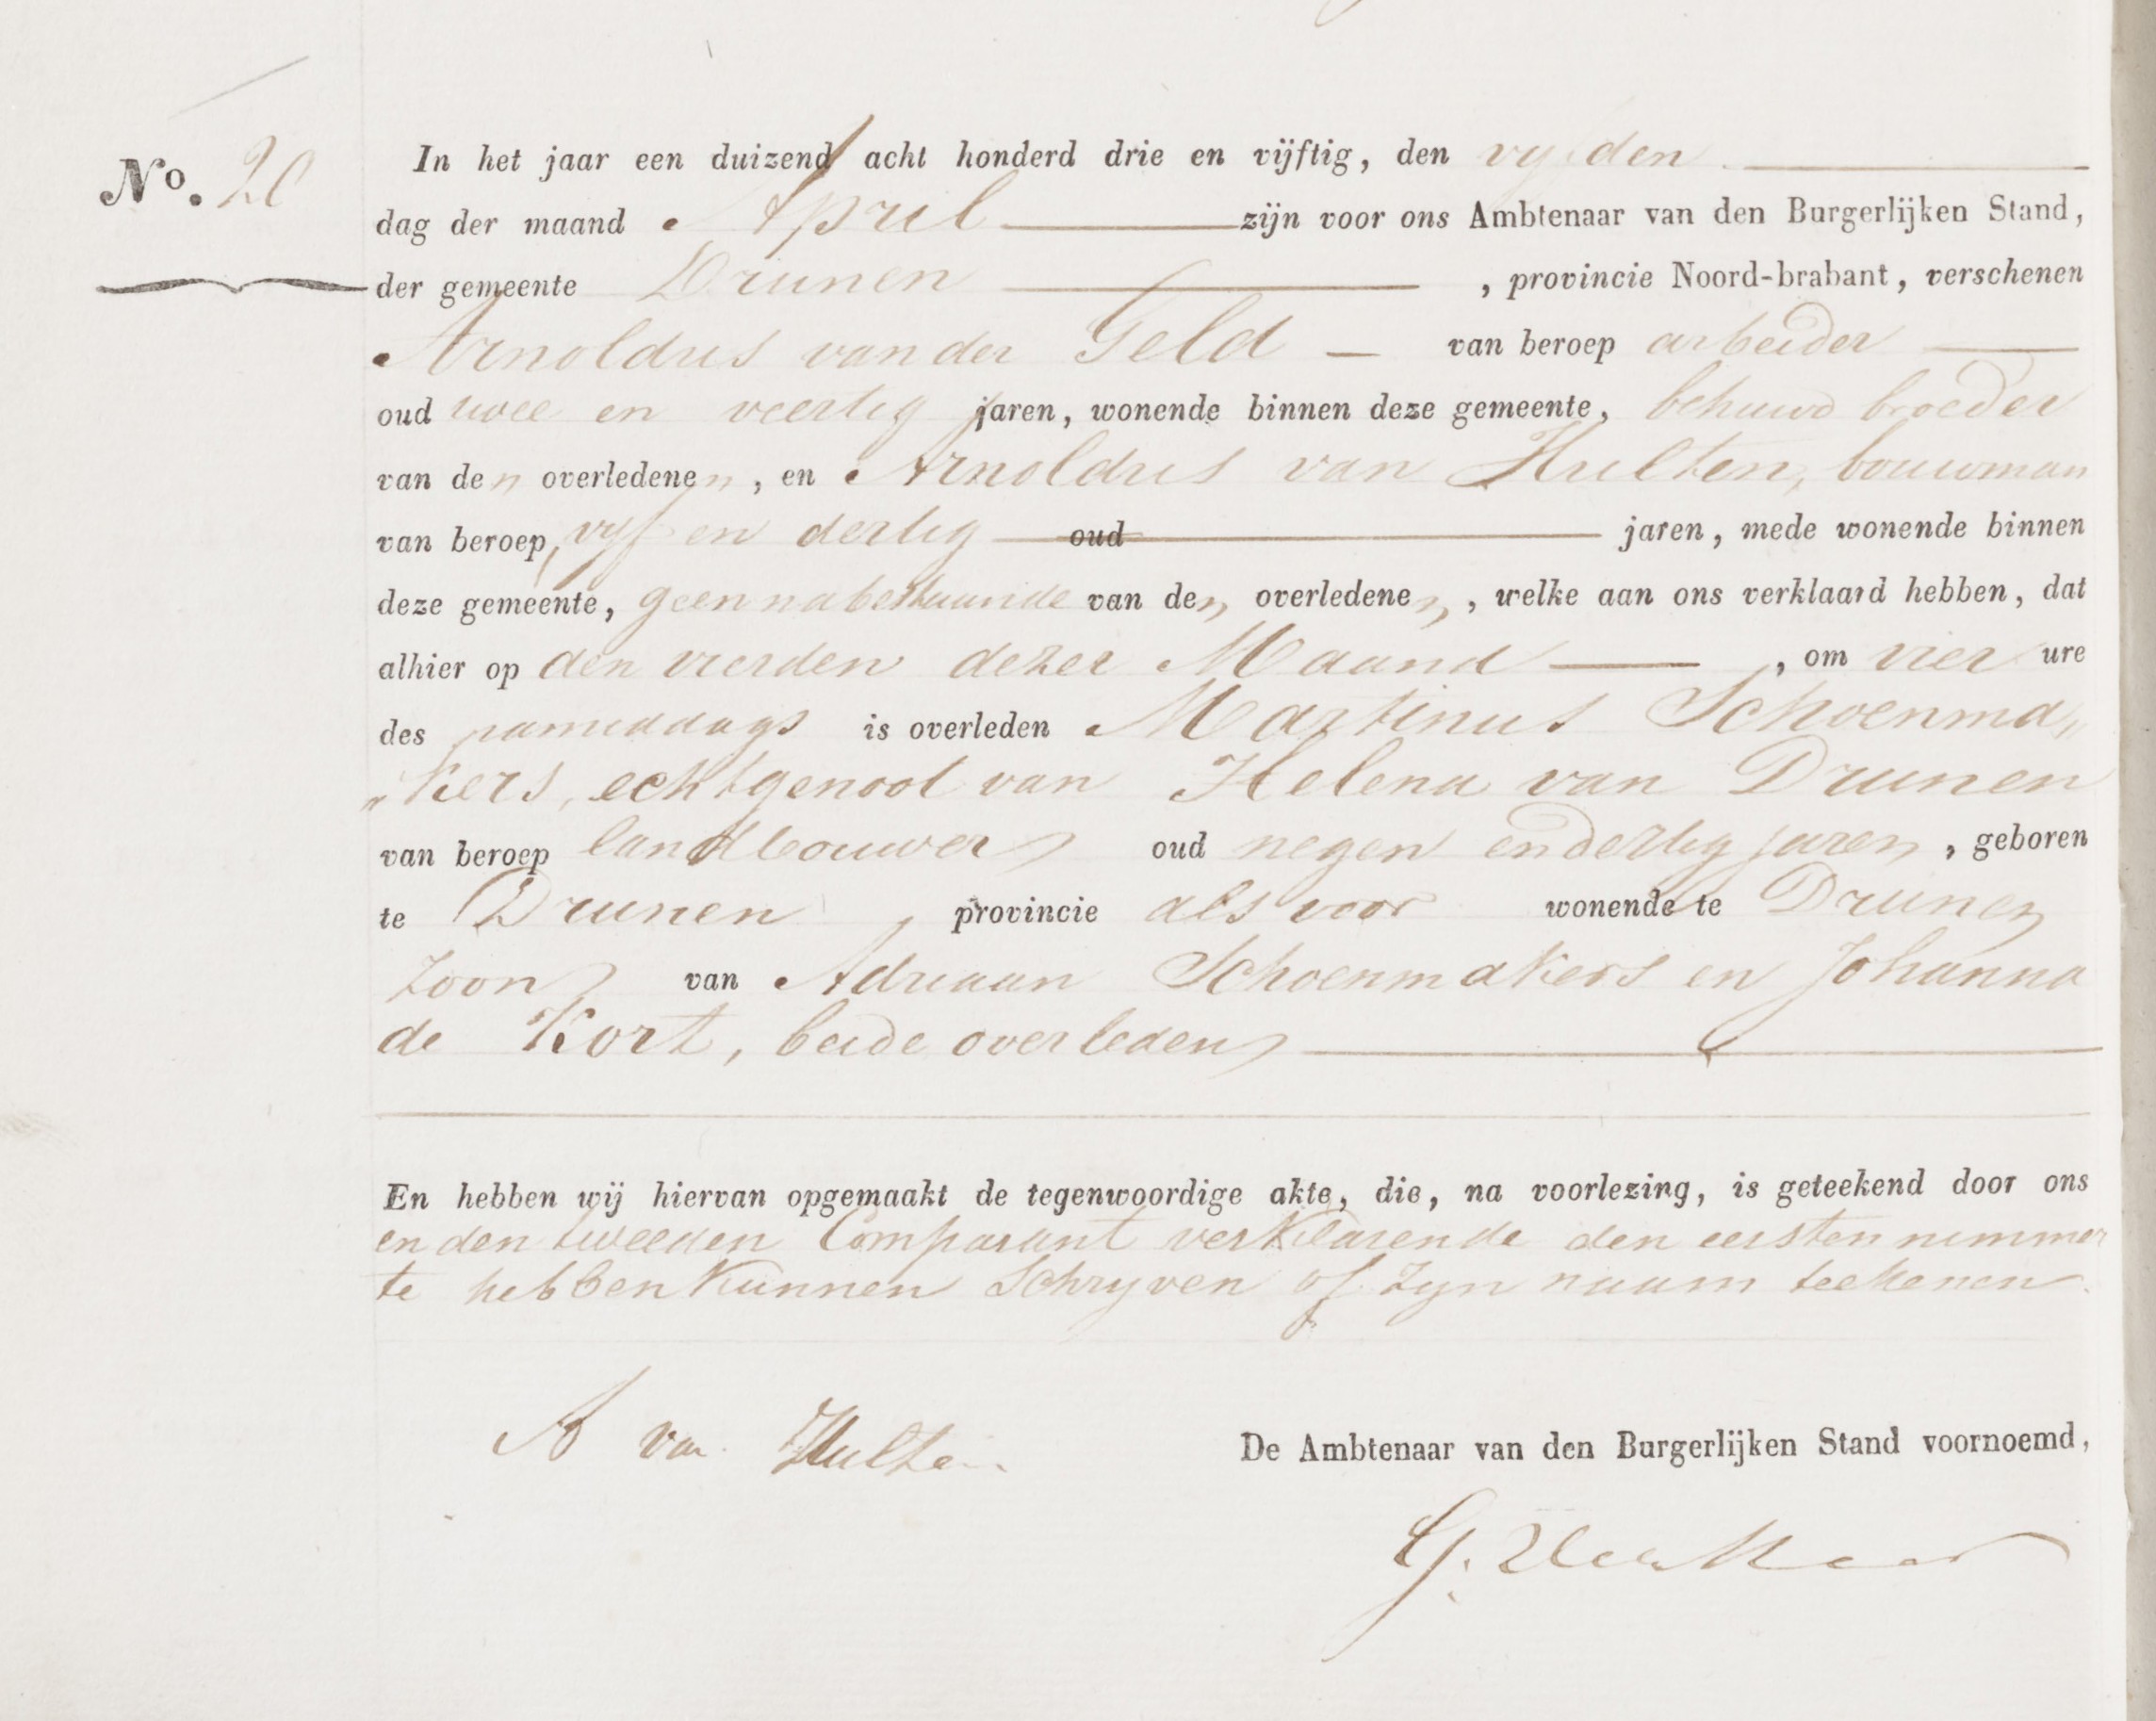 No. 20
In het jaar een duizend acht honderd drie en vijftig, den vyfden
dag der maand April zijn voor ons Ambtenaar van den Burgerlijken Stand,
der gemeente Drunen, provincie Noord-brabant, verschenen
Arnoldus van der Geld — van beroep arbeider
oud twee en veertig jaren, wonende binnen deze gemeente, behuwd broeder
van den overledenen, en Arnoldus van Hulten, bouwman
van beroep, vyf en dertig oud jaren, mede wonende binnen
deze gemeente, geen nabestaande van den overledenen, welke aan ons verklaard hebben, dat
alhier op den vierden dezer Maand, om vier ure
des namiddags is overleden Martinus Schoenma„
„kers, echtgenoot van Helena van Drunen
van beroep landbouwer oud negen en dertig jaren, geboren
te Drunen, provincie als voor wonende te Drunen
zoon van Adriaan Schoenmakers en Johanna
de Kort, beide overleden
En hebben wij hiervan opgemaakt de tegenwoordige akte, die, na voorlezing, is geteekend door ons
en den tweeden Comparant verklarende den eersten nimmer
te hebben kunnen schryven of zyn naam teekenen.
A van Hulten
De Ambtenaar van den Burgerlijken Stand voornoemd,
G.